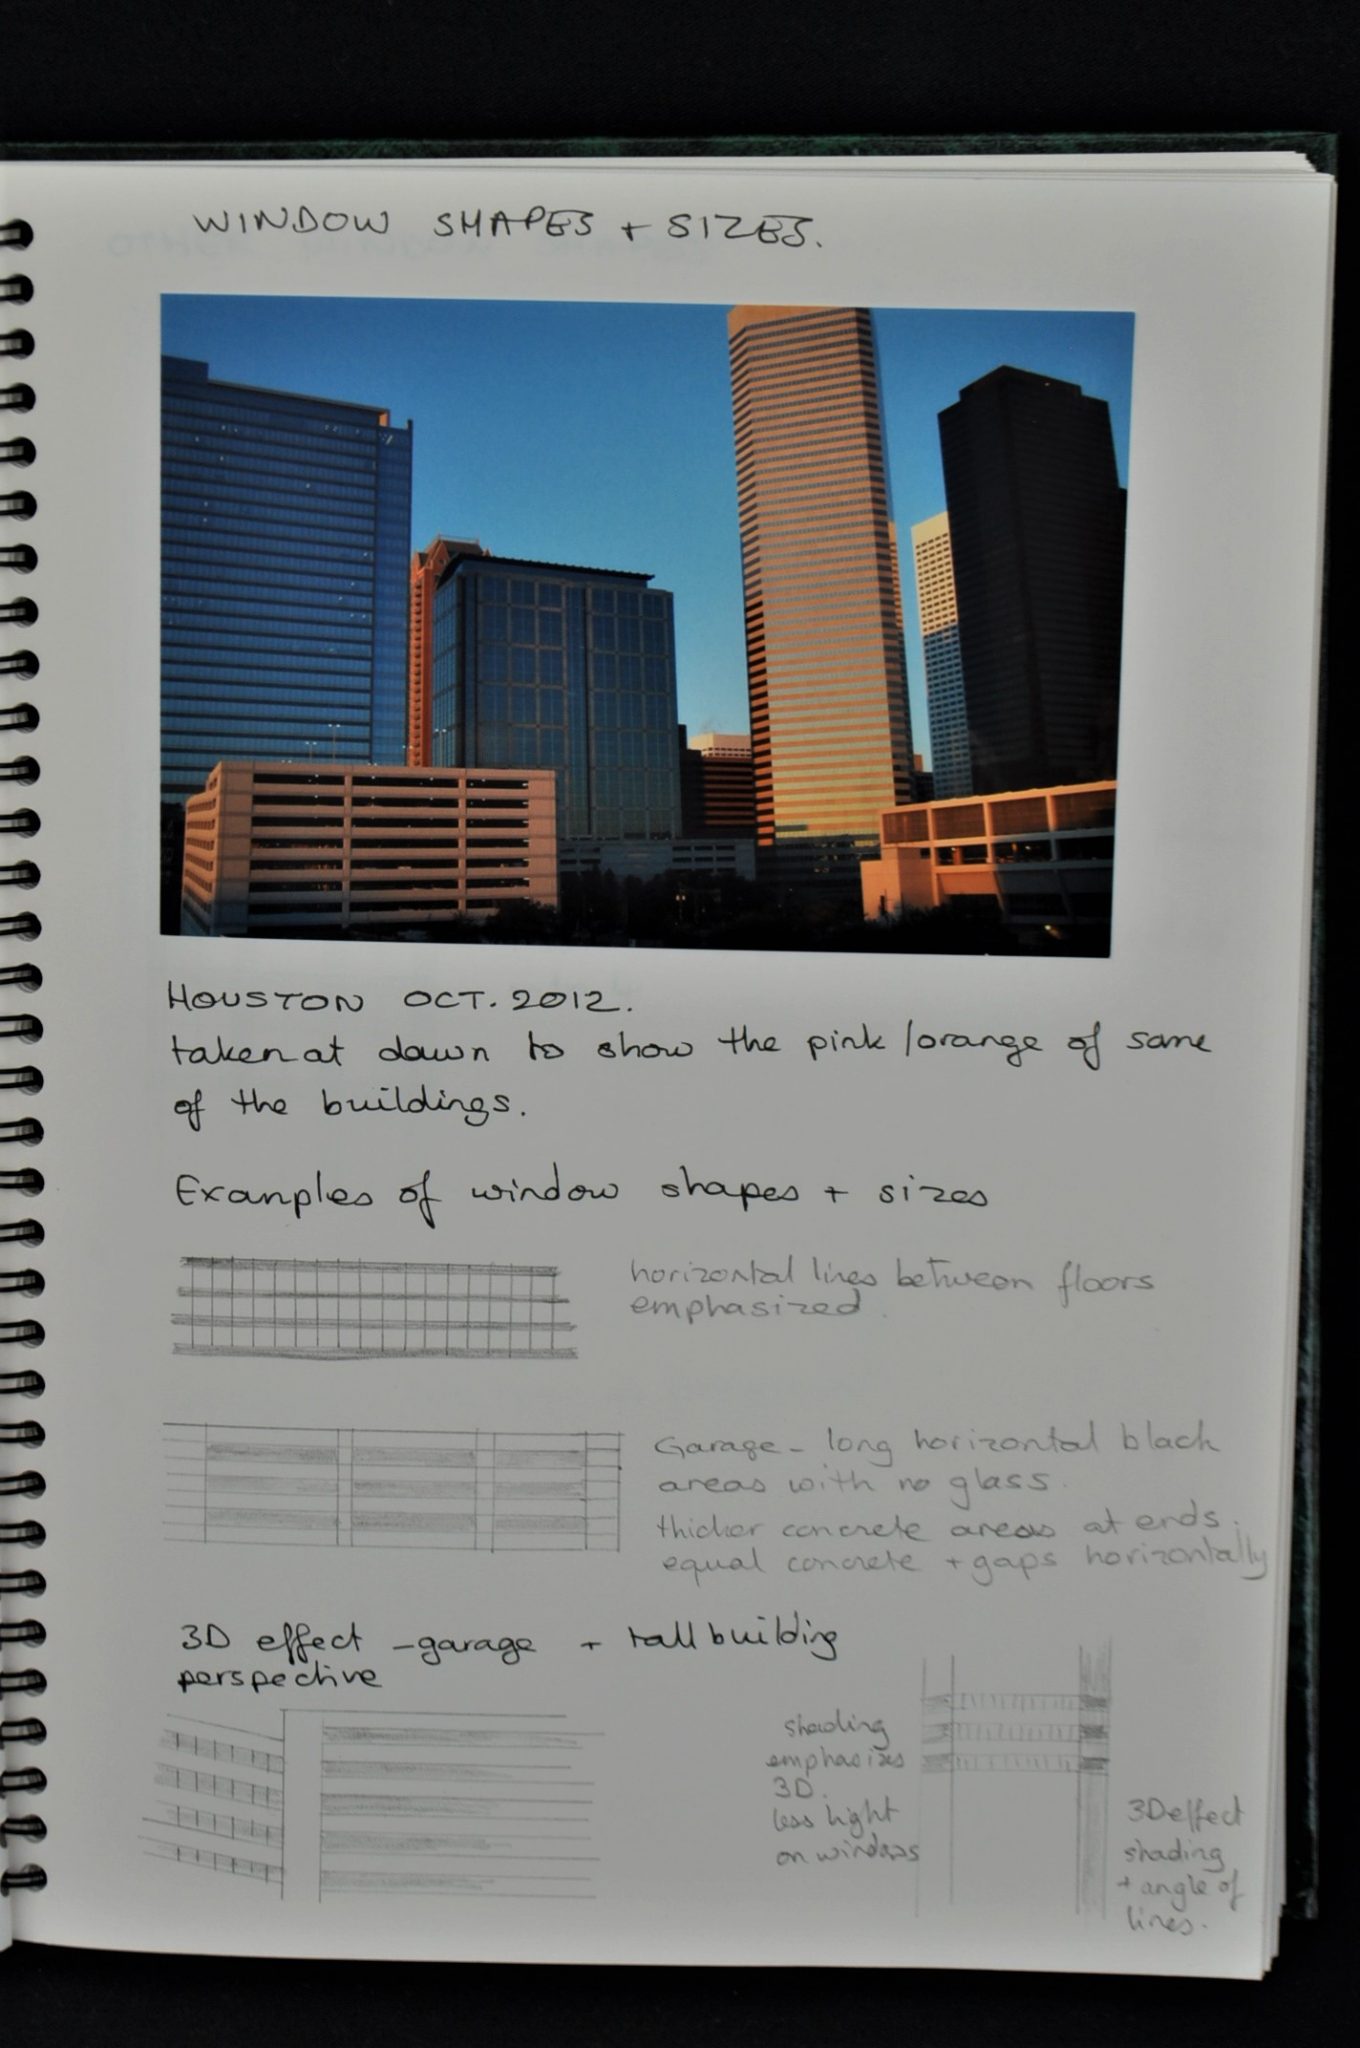 WINDOW SHAPES + SIZES.
HOUSTON OCT. 2012.
taken at dawn to show the pink/orange of some
of the buildings.
Examples of window shapes + sizes
horizontal lines between floors
emphasized.
Garage - long horizontal black
areas with no glass.
thicker concrete areas at ends.
equal concrete + gaps horizontally
3D effect - garage + tall building
perspective
shading
emphasizes
3D.
less light
on windows
3D effect
shading
+ angle of
lines.